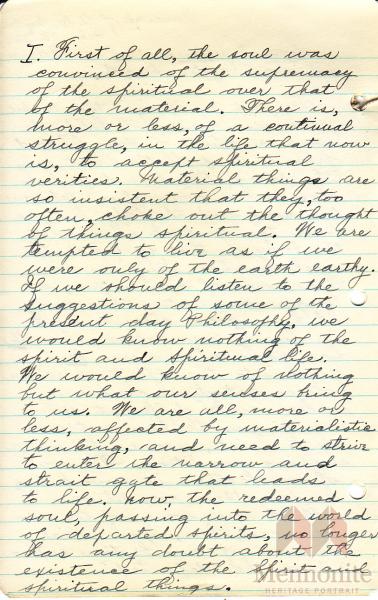 I. First of all, the soul was
convinced of the supremacy
of the spiritual over that
of the material. There is,
more or less, of a continual
struggle, in the life that now
is, to accept spiritual
verities. Material things are
so insistent that they, too
often, choke out the thought
of things spiritual. We are
tempted to live as if we
were only of the earth earthy.
If we should listen to the
suggestions of some of the
present day Philosophy, we
would know nothing of the
spirit and Spiritual life.
We would know of nothing
but what our senses bring
to us. We are all, more or
less, affected by materialistic
thinking, and need to strive
to enter the narrow and
strait gate that leads
to life. Now, the redeemed
soul, passing into the world
of departed spirits, no longer
has any doubt about the
existence of the Spirit and
spiritual things.
Mennonite
HERITAGE PORTRAIT